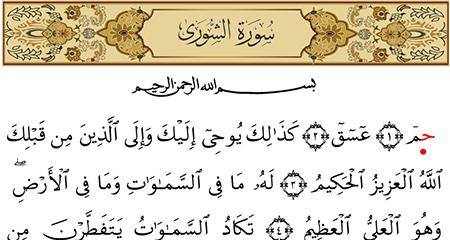 سورة الشورى
بسم الله الرحمن الرحيم
حمٓ ﴿١﴾ عٓسٓقٓ ﴿٢﴾ كَذَٰلِكَ يُوحِىٓ إِلَيْكَ وَإِلَى ٱلَّذِينَ مِن قَبْلِكَ
ٱللَّهُ ٱلْعَزِيزُ ٱلْحَكِيمُ ﴿٣﴾ لَهُۥ مَا فِى ٱلسَّمَـٰوَٰتِ وَمَا فِى ٱلْأَرْضِ ۖ
وَهُوَ ٱلْعَلِىُّ ٱلْعَظِيمُ ﴿٤﴾ تَكَادُ ٱلسَّمَـٰوَٰتُ يَتَفَطَّرْنَ مِن